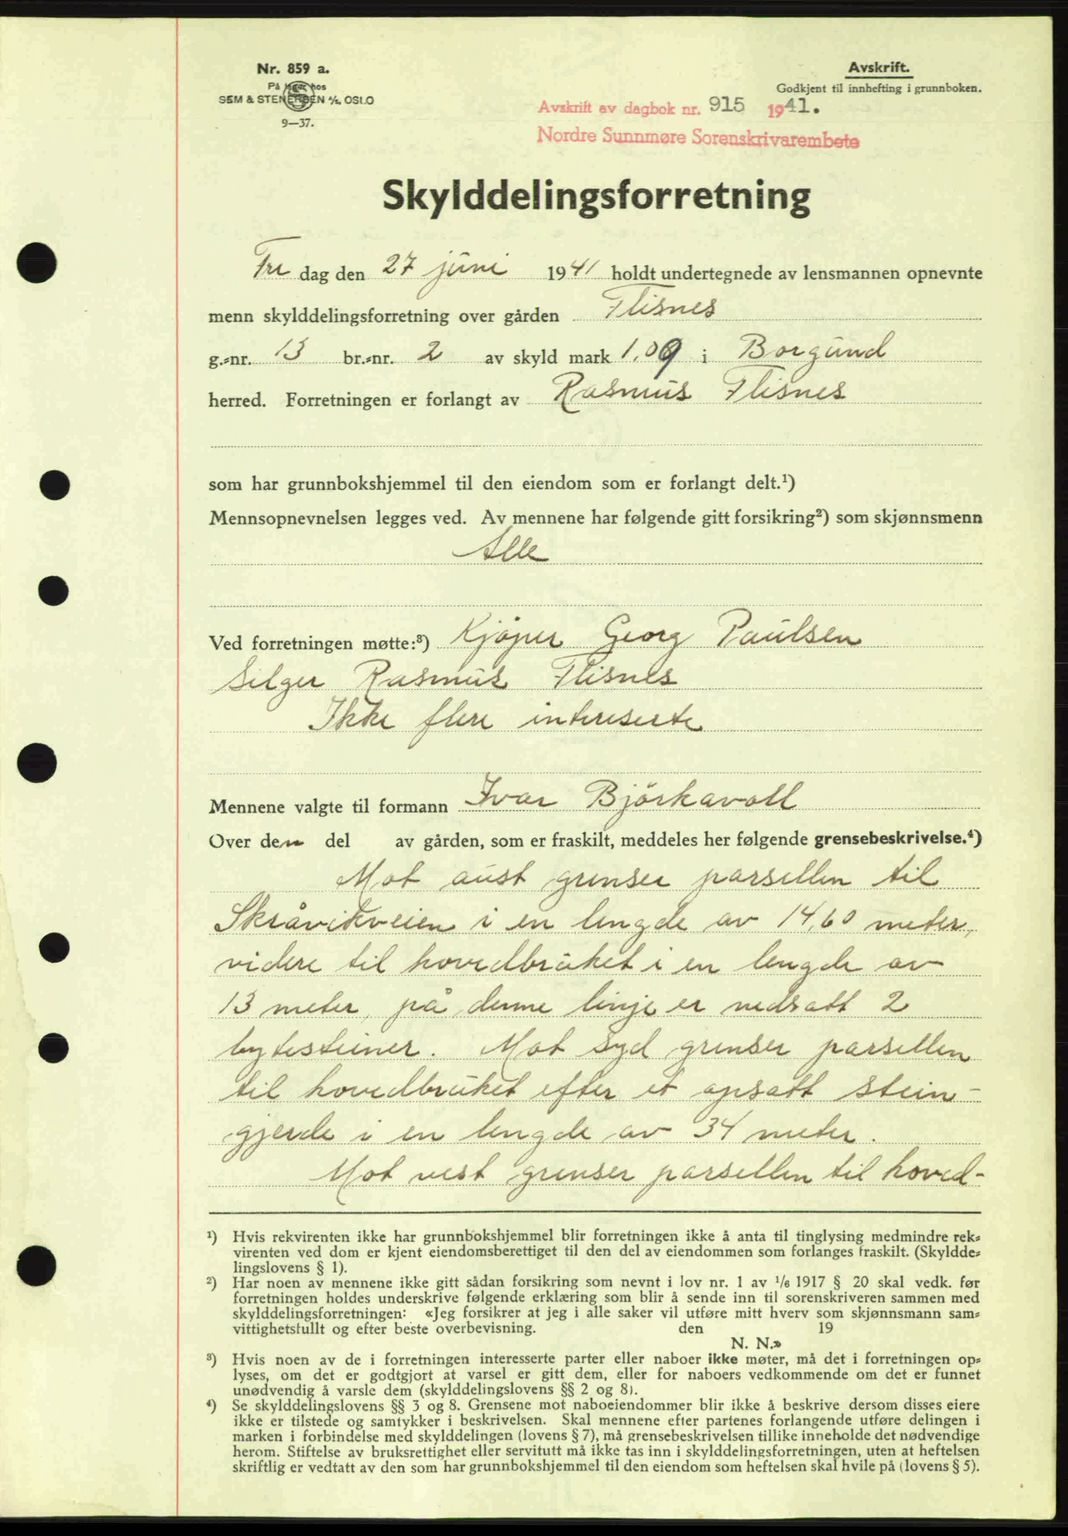 Nr. 859 a.
På lager hos
SEM & STENERSEN A/S, OSLO
9—37.
Avskrift.
Godkjent til innhefting i grunnboken.
Avskrift av dagbok nr. 915 1941.
Nordre Sunnmøre Sorenskrivarembete
Skylddelingsforretning
Fre dag den 27 juni 1941 holdt undertegnede av lensmannen opnevnte
menn skylddelingsforretning over gården Flisnes
g.-nr. 13 br.-nr. 2 av skyld mark 1,09 i Borgund
herred. Forretningen er forlangt av Rasmus Flisnes
som har grunnbokshjemmel til den eiendom som er forlangt delt.¹)
Mennsopnevnelsen legges ved. Av mennene har følgende gitt forsikring²) som skjønnsmenn
Alle
Ved forretningen møtte:³) Kjöper Georg Paulsen
Selger Rasmus Flisnes
Ikke flere intereserte
Mennene valgte til formann Ivar Björkavoll
Over den del av gården, som er fraskilt, meddeles her følgende grensebeskrivelse.⁴)
Mot aust grenser parsellen til
Skråvikveien i en lengde av 14,60 meter,
videre til hovedbruket i en lengde av
13 meter, på denne linje er nedsatt 2
bytesteiner. Mot syd grenser parsellen
til hovedbruket efter et opsatt stein-
gjerde i en lengde av 34 meter.
Mot vest grenser parsellen til hoved-
¹) Hvis rekvirenten ikke har grunnbokshjemmel blir forretningen ikke å anta til tinglysing medmindre rek-
virenten ved dom er kjent eiendomsberettiget til den del av eiendommen som forlanges fraskilt. (Skyldde-
lingslovens § 1).
²) Har noen av mennene ikke gitt sådan forsikring som nevnt i lov nr. 1 av 1/6 1917 § 20 skal vedk. før
forretningen holdes underskrive følgende erklæring som blir å sende inn til sorenskriveren sammen med
skylddelingsforretningen: «Jeg forsikrer at jeg i alle saker vil utføre mitt hverv som skjønnsmann sam-
vittighetsfullt og efter beste overbevisning. den 19
N. N.»
³) Hvis noen av de i forretningen interesserte parter eller naboer ikke møter, må det i forretningen op-
lyses, om det er godtgjort at varsel er gitt dem, eller for naboers vedkommende om det er funnet
unødvendig å varsle dem (skylddelingslovens §§ 2 og 8).
⁴) Se skylddelingslovens §§ 3 og 8. Grensene mot naboeiendommer blir ikke å beskrive dersom disses eiere
ikke er tilstede og samtykker i beskrivelsen. Skal mennene efter partenes forlangende utføre delingen i
marken i forbindelse med skylddelingen (lovens § 7), må grensebeskrivelsen tillike inneholde det nødvendige
herom. Stiftelse av bruksrettighet eller servitutt må ikke tas inn i skylddelingsforretningen, uten at heftelsen
skriftlig er vedtatt av den som har grunnbokshjemmel til den eiendom som heftelsen skal hvile på (lovens § 5).